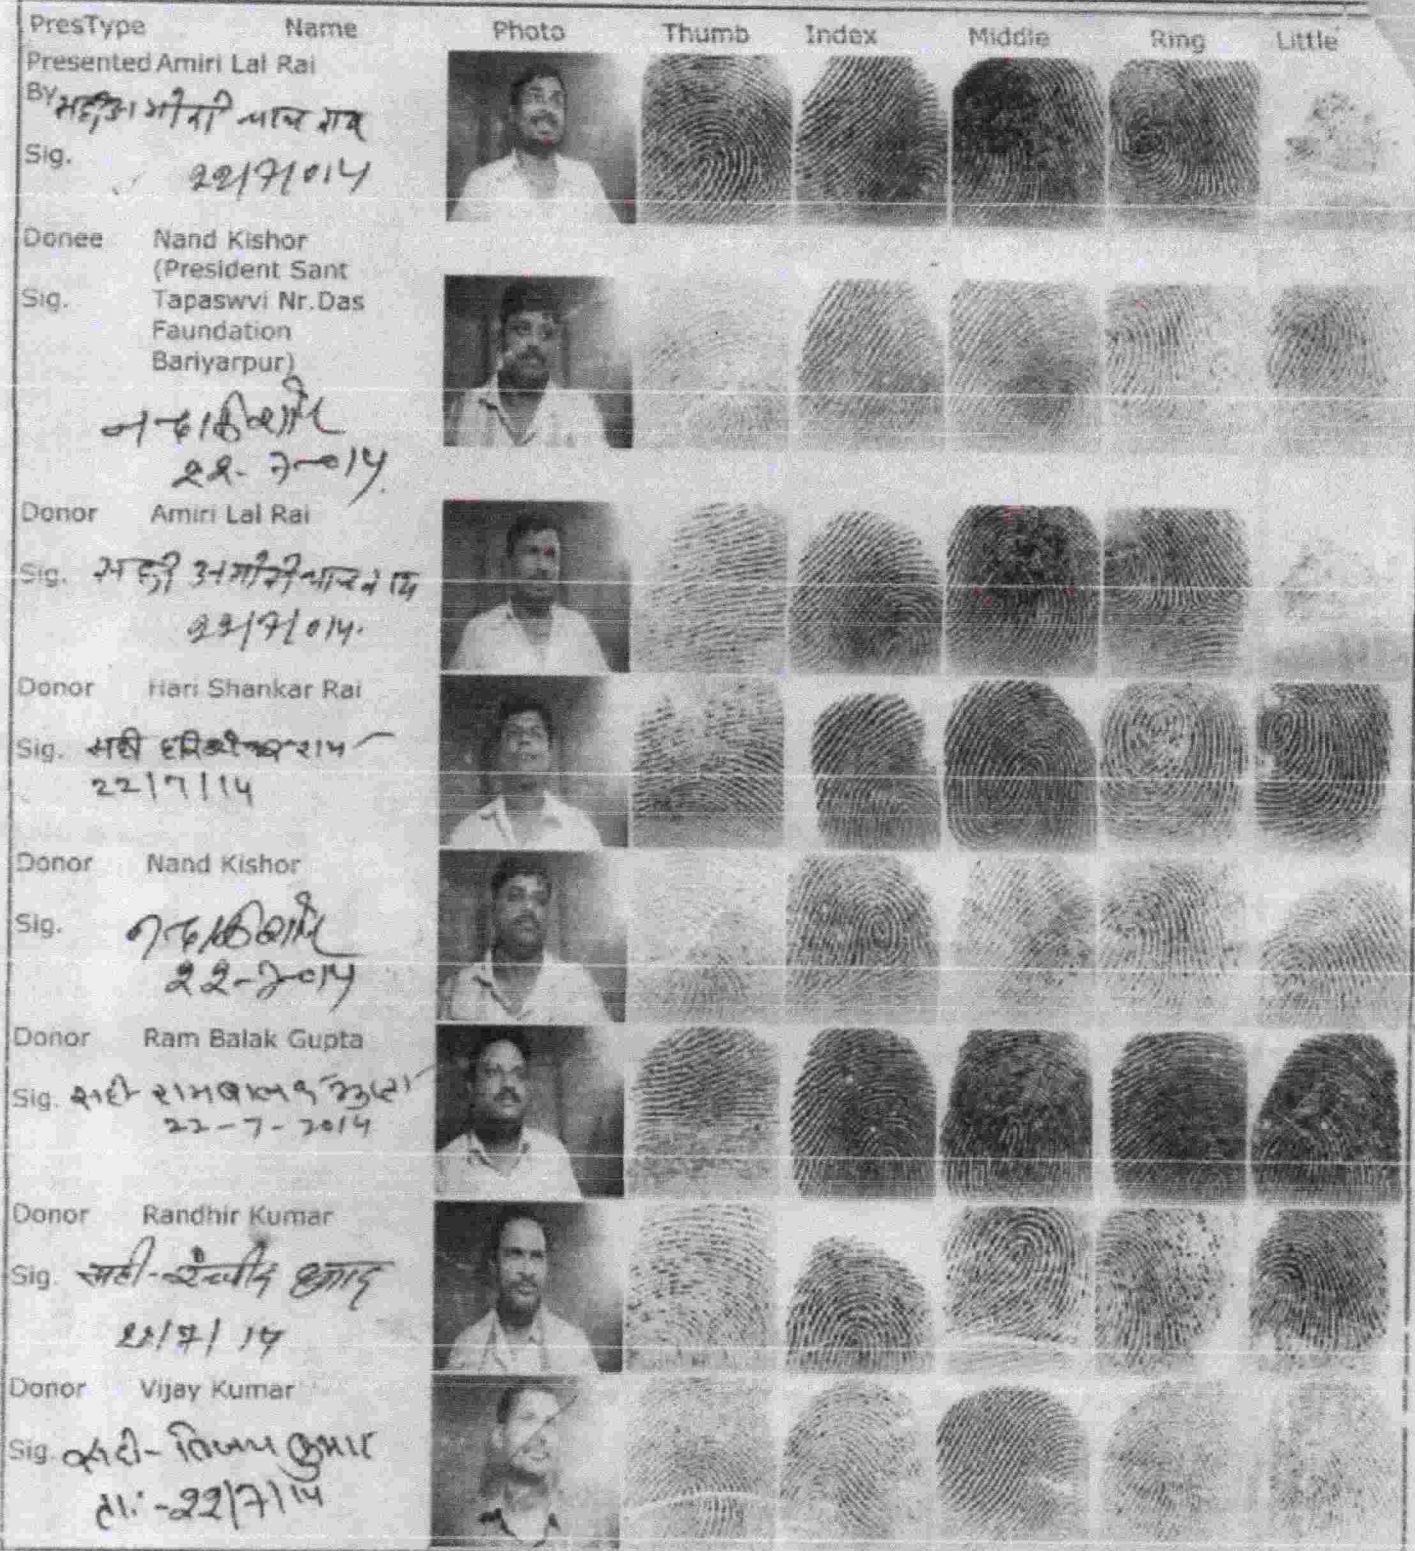 PresType Name Photo Thumb Index Middle Ring Little
Presented Amiri Lal Rai
By
Sig.
22/7/014
Donee Nand Kishor
(President Sant
Sig. Tapaswvi Nr.Das
Faundation
Bariyarpur)
नन्दकिशोर
22-7-014
Donor Amiri Lal Rai
Sig. सही अमीरी लाल राय
22/7/014
Donor Hari Shankar Rai
Sig. सही राय
22/7/14
Donor Nand Kishor
Sig. नन्दकिशोर
22-7-014
Donor Ram Balak Gupta
Sig. सही रामबालक गुप्ता
22-7-2014
Donor Randhir Kumar
Sig. सही-रंधीर कुमार
22/7/14
Donor Vijay Kumar
Sig. सही-विजय कुमार
ता:-22/7/14